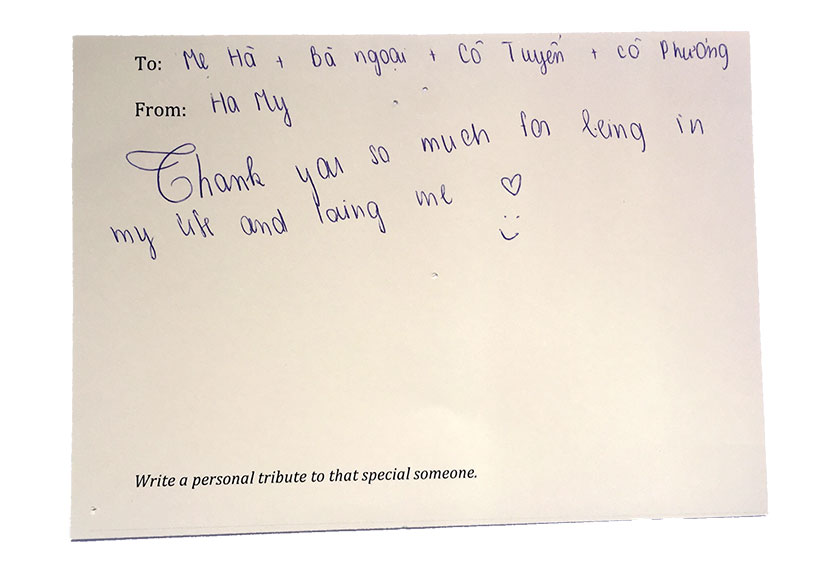 To: Mẹ Hà + Bà ngoại + Cô Tuyến + cô Phương
From: Ha My
Thank you so much for being in
my life and loving me ♡
Write a personal tribute to that special someone.